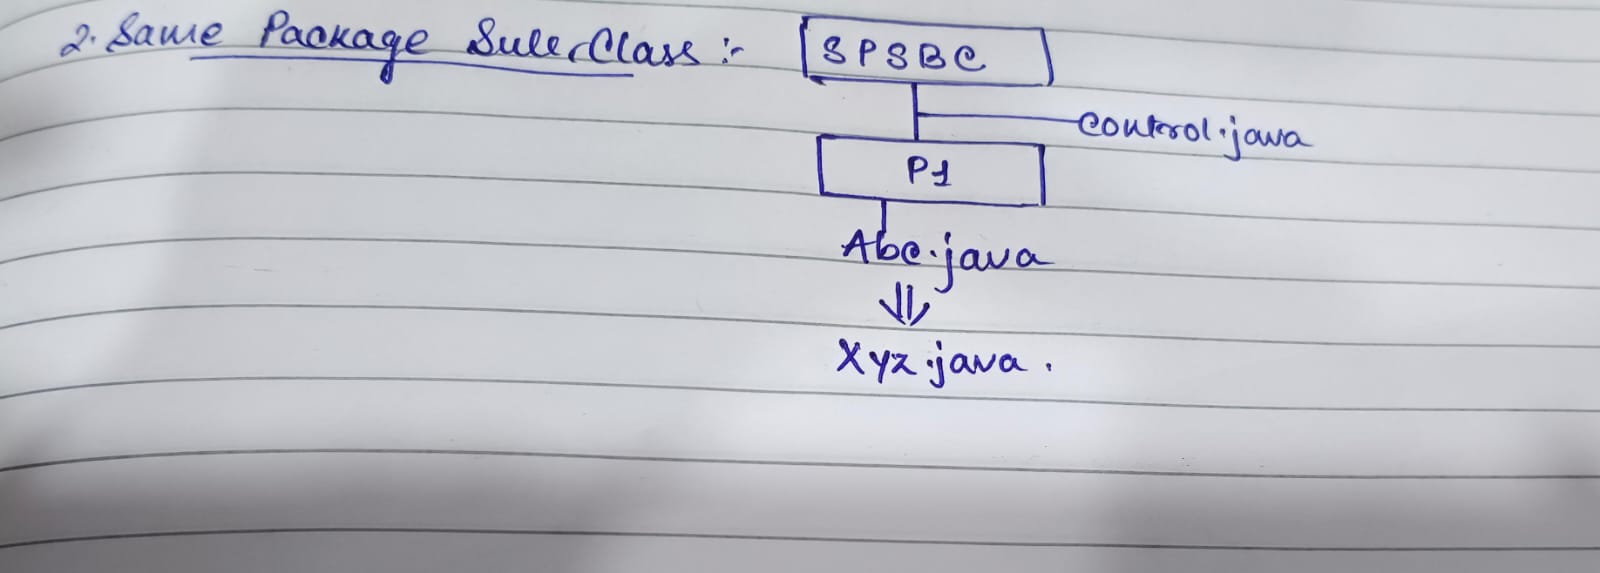 2. Same Package SubClass :-
SPSBC
Control.java
P1
Abc.java
⇓
Xyz.java.